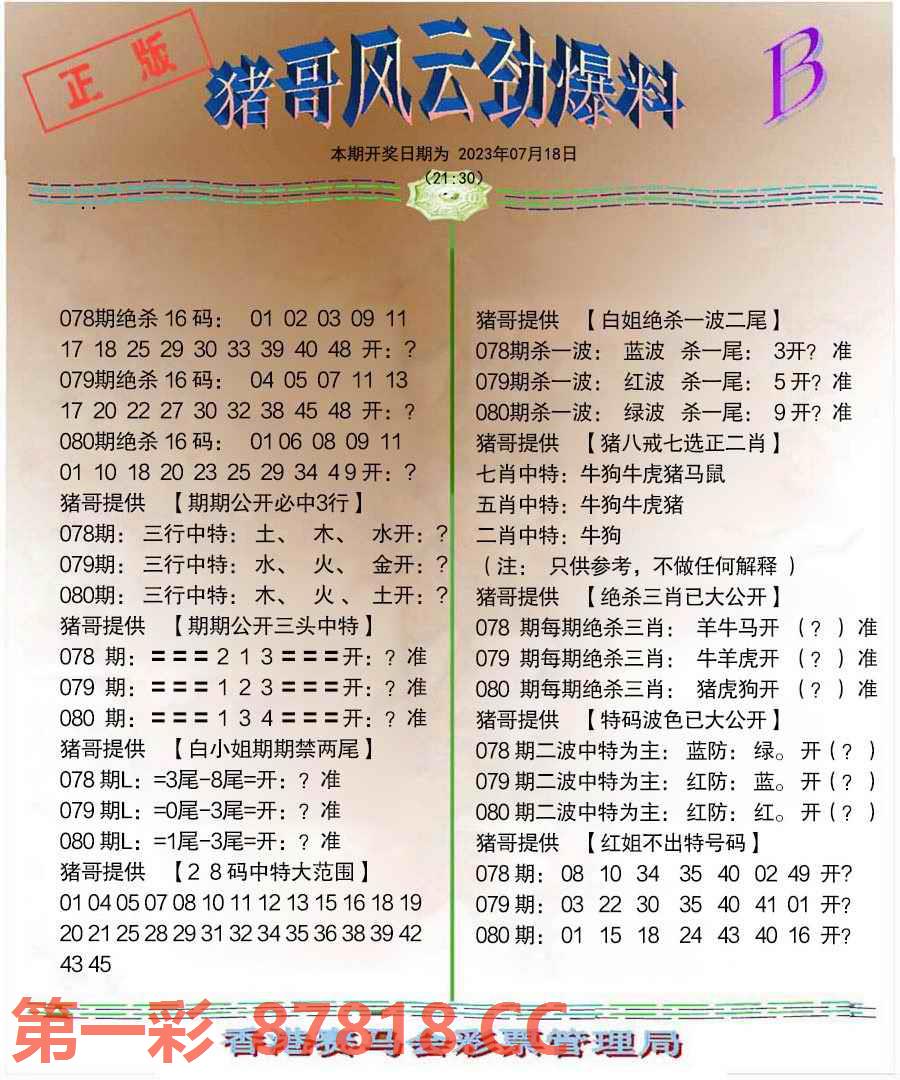 正版
猪哥风云劲爆料
B
本期开奖日期为 2023年07月18日
(21:30)
078期绝杀 16 码： 01 02 03 09 11
17 18 25 29 30 33 39 40 48 开：?
079期绝杀 16 码： 04 05 07 11 13
17 20 22 27 30 32 38 45 48 开：?
080期绝杀 16 码： 01 06 08 09 11
01 10 18 20 23 25 29 34 4 9 开：?
猪哥提供 【期期公开必中3行】
078期： 三行中特： 土、 木、 水开：?
079期： 三行中特： 水、 火、 金开：?
080期： 三行中特： 木、 火 、 土开：?
猪哥提供 【期期公开三头中特】
078 期：＝＝＝ 2 1 3 ＝＝＝开：? 准
079 期：＝＝＝ 1 2 3 ＝＝＝开：? 准
080 期：＝＝＝ 1 3 4 ＝＝＝开：? 准
猪哥提供 【白小姐期期禁两尾】
078 期L：=3尾-8尾=开：? 准
079 期L：=0尾-3尾=开：? 准
080 期L：=1尾-3尾=开：? 准
猪哥提供 【2 8 码中特大范围】
01 04 05 07 08 10 11 12 13 15 16 18 19
20 21 25 28 29 31 32 34 35 36 38 39 42
43 45
猪哥提供 【白姐绝杀一波二尾】
078期杀一波： 蓝波 杀一尾： 3开? 准
079期杀一波： 红波 杀一尾： 5 开? 准
080期杀一波： 绿波 杀一尾： 9 开? 准
猪哥提供 【猪八戒七选正二肖】
七肖中特：牛狗牛虎猪马鼠
五肖中特：牛狗牛虎猪
二肖中特：牛狗
（注： 只供参考，不做任何解释 ）
猪哥提供 【绝杀三肖已大公开】
078 期每期绝杀三肖： 羊牛马开 （? ）准
079 期每期绝杀三肖： 牛羊虎开 （? ）准
080 期每期绝杀三肖： 猪虎狗开 （? ）准
猪哥提供 【特码波色已大公开】
078 期二波中特为主： 蓝防： 绿。 开（? ）
079 期二波中特为主： 红防： 蓝。 开（? ）
080 期二波中特为主： 红防： 红。 开（? ）
猪哥提供 【红姐不出特号码】
078 期： 08 10 34 35 40 02 49 开?
079 期： 03 22 30 35 40 41 01 开?
080 期： 01 15 18 24 43 40 16 开?
第一彩 87818.CC
香港赛马会彩票管理局